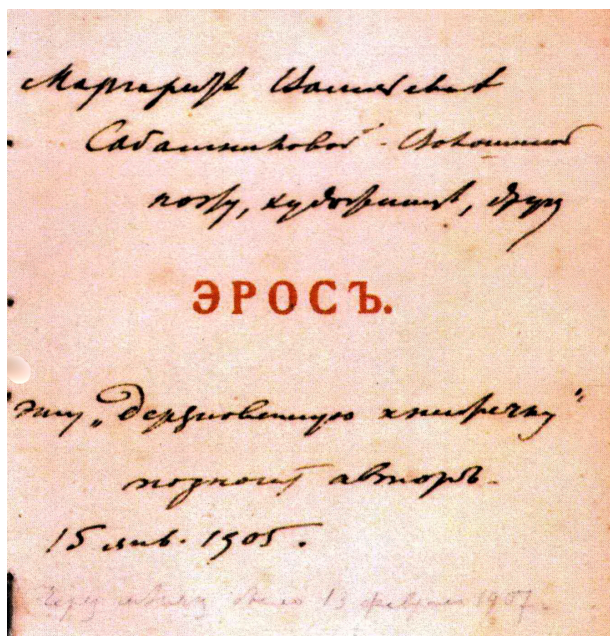 Маргаритѣ Васильевнѣ
Сабашниковой-Волошиной
поэту, художницѣ, другу
ЭРОСЪ.
эту „дерзновенную книжечку"
подноситъ авторъ.
15 янв. 1905.
Через мѣсяц было 13 февраля 1907.